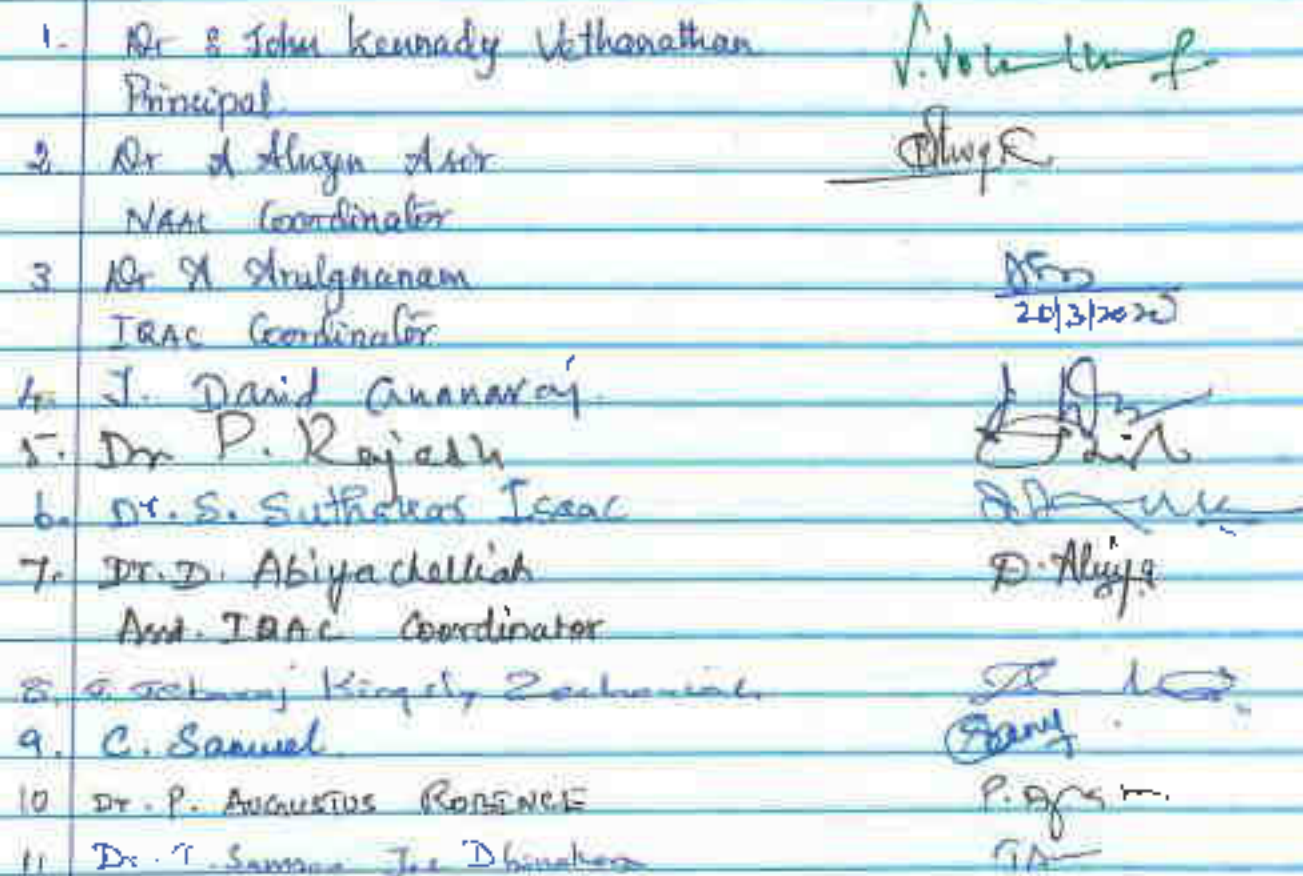 1. Dr S John Kennady Vethanathan
Principal
2. Dr A Alwyn Asir
NAAC Coordinator
3 Dr A Arulgnanam
20/3/2020
IQAC Coordinator
4. J. David Gnanaraj.
5. Dr P. Rajesh
6. Dr. S. Suthakar Isaac
7. Dr. D. Abiya chelliah
D. Abiya
Asst. IQAC Coordinator
8. J. Jebaraj Kingsly Zechariah
9. C. Samuel
10 Dr. P. AUGUSTUS ROBINCE
11 Dr. T. Samson Joe Dhinakaran